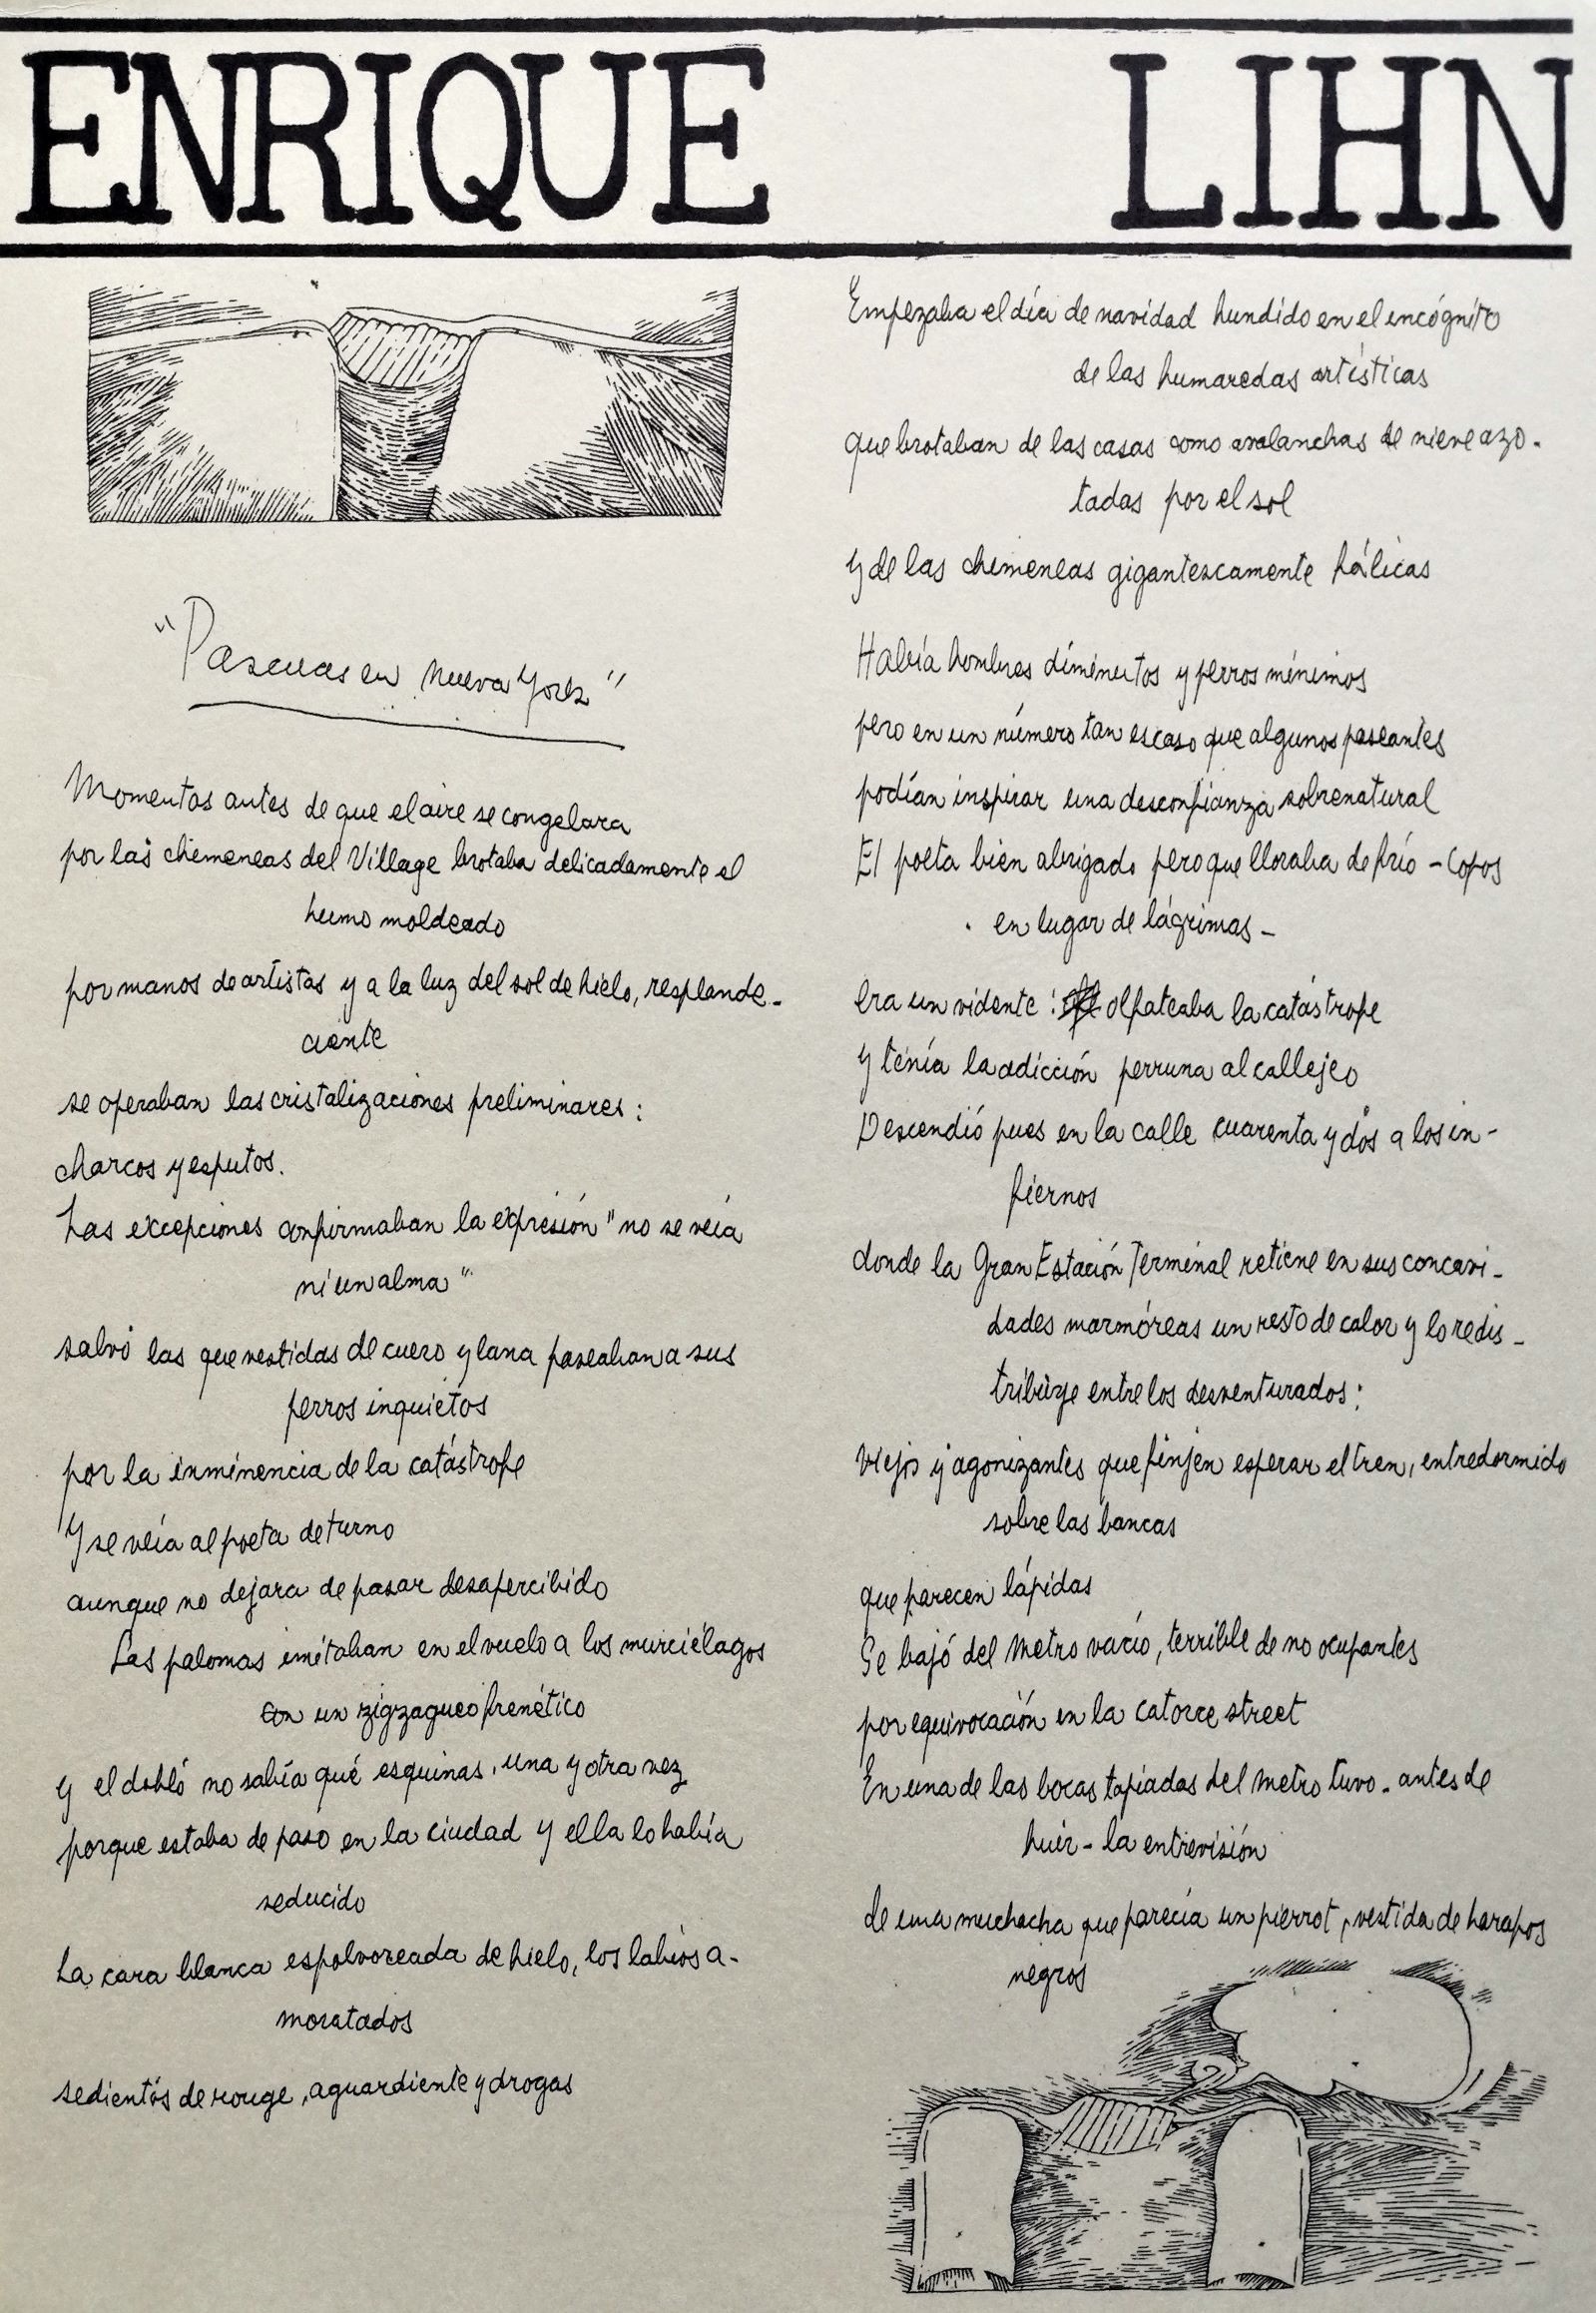 ENRIQUE LIHN
"Pascuas en Nueva York"
Momentos antes de que el aire se congelara
por las chimeneas del Village brotaba delicadamente el
humo moldeado
por manos de artistas y a la luz del sol de hielo, resplande-
ciente
se operaban las cristalizaciones preliminares:
charcos y esputos.
Las excepciones confirmaban la expresión "no se veía
ni un alma"
salvo las que vestidas de cuero y lana paseaban a sus
perros inquietos
por la inminencia de la catástrofe
Y se veía al poeta de turno
aunque no dejara de pasar desapercibido
Las palomas imitaban en el vuelo a los murciélagos
con un zigzagueo frenético
y el dobló no sabía qué esquinas, una y otra vez
porque estaba de paso en la ciudad y ella lo había
seducido
La cara blanca espolvoreada de hielo, los labios a-
moratados
sedientos de rouge, aguardiente y drogas
Empezaba el día de navidad hundido en el incógnito
de las humaredas artísticas
que brotaban de las casas como avalanchas de nieve azo-
tadas por el sol
y de las chimeneas gigantescamente fálicas
Había hombres diminutos y perros mínimos
pero en un número tan escaso que algunos paseantes
podían inspirar una desconfianza sobrenatural
El poeta bien abrigado pero que lloraba de frío - Copos
en lugar de lágrimas -
era un vidente: olfateaba la catástrofe
y tenía la adicción perruna al callejeo
Descendió pues en la calle cuarenta y dos a los in-
fiernos
donde la Gran Estación Terminal retiene en sus concavi-
dades marmóreas un resto de calor y lo redis-
tribuye entre los desventurados:
viejos y agonizantes que finjen esperar el tren, entredormido
sobre las bancas
que parecen lápidas
Se bajó del Metro vacío, terrible de no ocupantes
por equivocación en la catorce street
En una de las bocas tapiadas del metro tuvo - antes de
huir - la entrevisión
de una muchacha que parecía un pierrot, vestida de harapos
negros